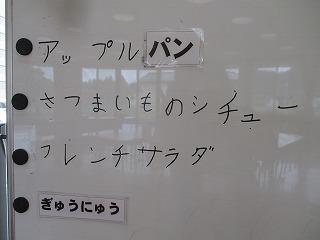 アップルパン
さつまいものシチュー
フレンチサラダ
ぎゅうにゅう